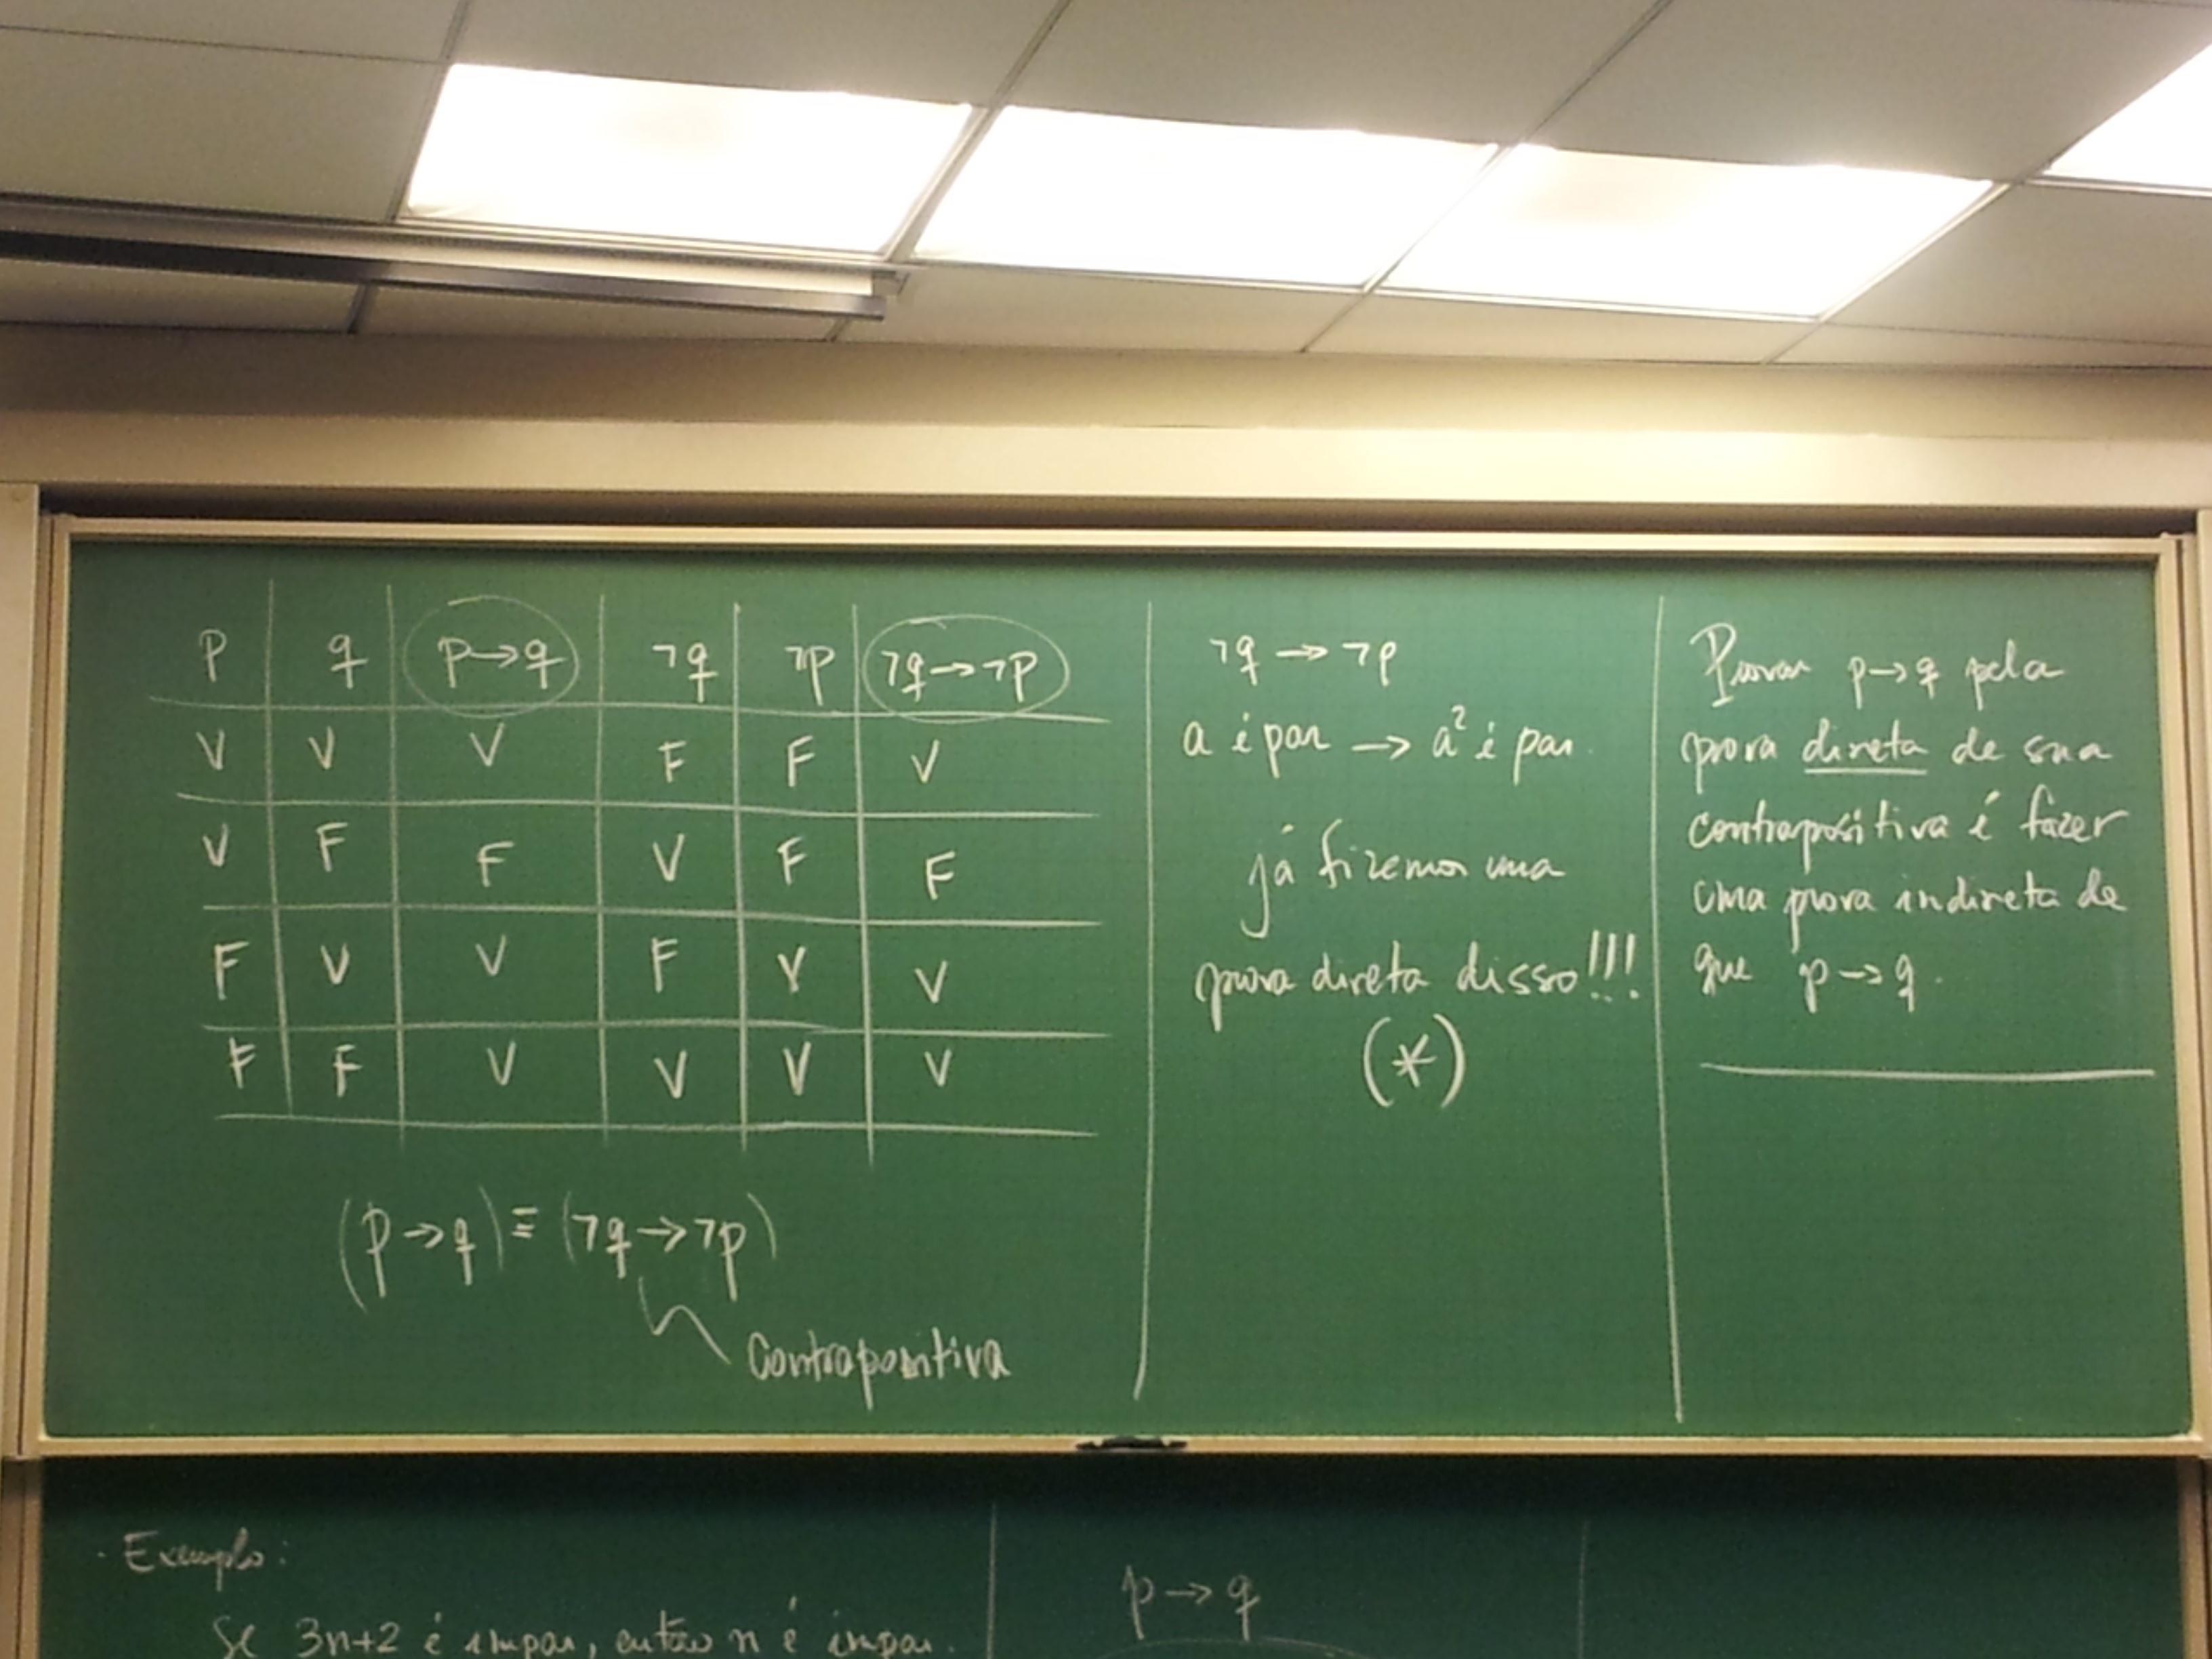 p q p→q ¬q ¬p ¬q→¬p
V V V F F V
V F F V F F
F V V F V V
F F V V V V
(p→q)≡(¬q→¬p)
Contrapositiva
¬q → ¬p
a é par → a² é par.
já fizemos uma
prova direta disso!!!
(*)
Provar p→q pela
prova direta de sua
contrapositiva é fazer
uma prova indireta de
que p→q.
· Exemplo:
Se 3n+2 é ímpar, então n é ímpar.
p→q